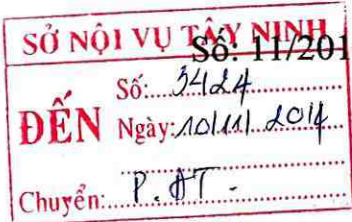 SỞ NỘI VỤ TÂY NINH
Số: 11/201
Số: 3424
ĐẾN Ngày: 10/11/2014
Chuyển: P. ĐT -